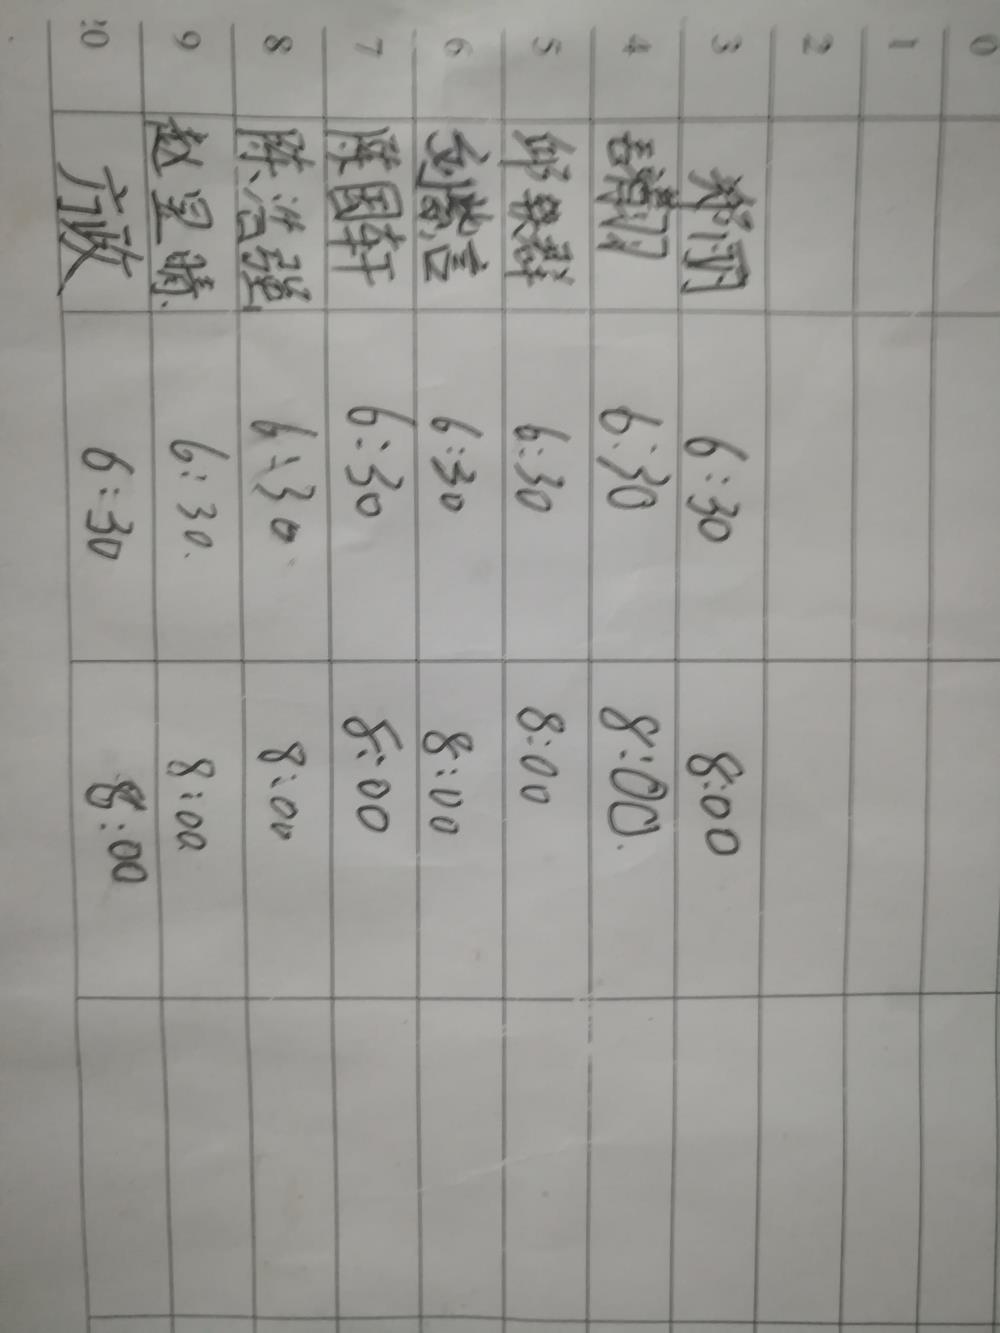 0
1
2
3 6:30 8:00
4 6:30 8:00.
5 6:30 8:00
6 6:30 8:00
7 陈国轩 6:30 8:00
8 陈浩强 6:30 8:00
9 赵昱晴 6:30. 8:00
方政 6:30 8:00